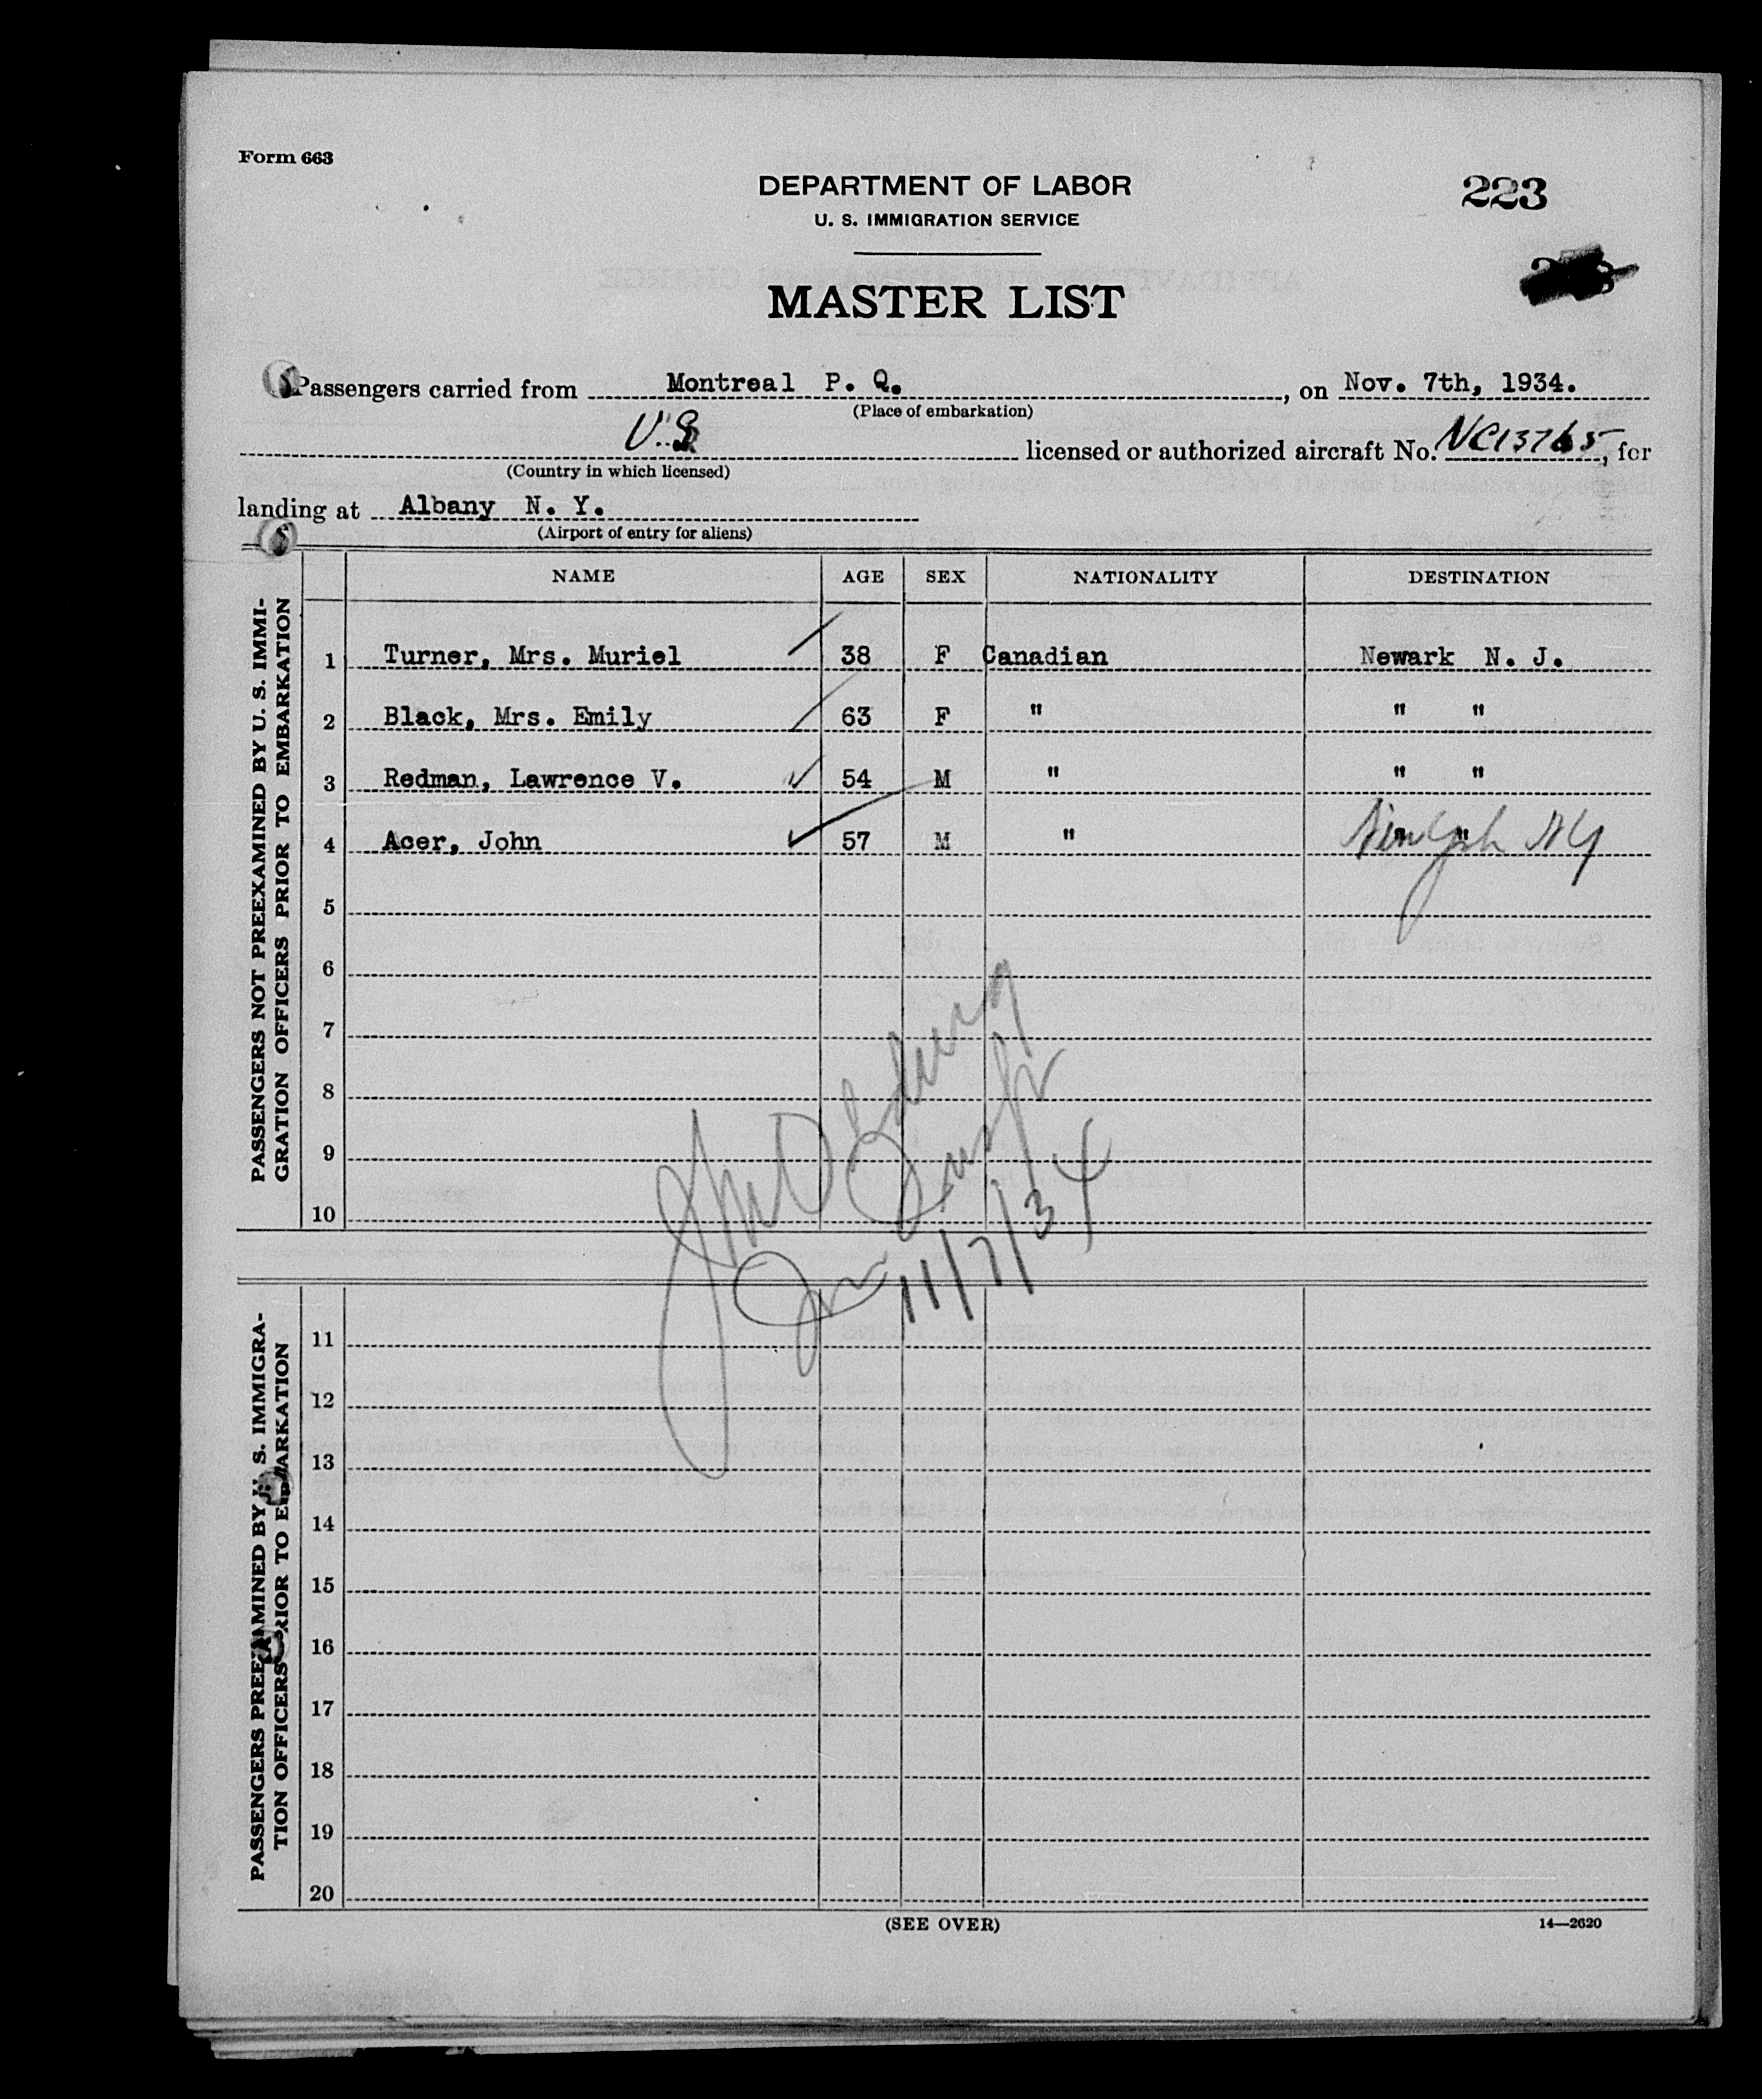 Form 663
DEPARTMENT OF LABOR
223
U. S. IMMIGRATION SERVICE
MASTER LIST
Passengers carried from Montreal P. Q., on Nov. 7th, 1934.
(Place of embarkation)
U.S. licensed or authorized aircraft No. NC13765, for
(Country in which licensed)
landing at Albany N. Y.
(Airport of entry for aliens)
NAME AGE SEX NATIONALITY DESTINATION
PASSENGERS NOT PREEXAMINED BY U. S. IMMI-
GRATION OFFICERS PRIOR TO EMBARKATION
1 Turner, Mrs. Muriel 38 F Canadian Newark N. J.
2 Black, Mrs. Emily 63 F " " "
3 Redman, Lawrence V. 54 M " " "
4 Acer, John 57 M " " " New York NY
5
6
7
8
9
10
11/7/34
PASSENGERS PREEXAMINED BY U. S. IMMIGRA-
TION OFFICERS PRIOR TO EMBARKATION
11
12
13
14
15
16
17
18
19
20
(SEE OVER)
14—2620